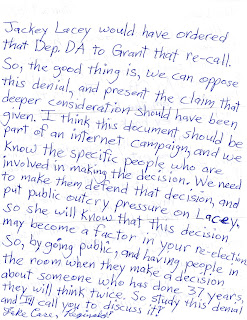 Jackey Lacey would have ordered
that Dep. DA to Grant that re-call.
So, the good thing is, we can oppose
this denial, and present the claim that
deeper consideration should have been
given. I think this document should be
part of an internet campaign, and we
Know the specific people who are
involved in making the decision. We need
to make them defend that decision, and
put public outcry pressure on Lacey.
So she will know that this decision
may become a factor in your re-election.
So, by going public, and having people in
the room when they make a decision
about someone who has done 37 years,
they will think twice. So study this denial
and I'll call you to discuss it?
Take Care, Reginald!